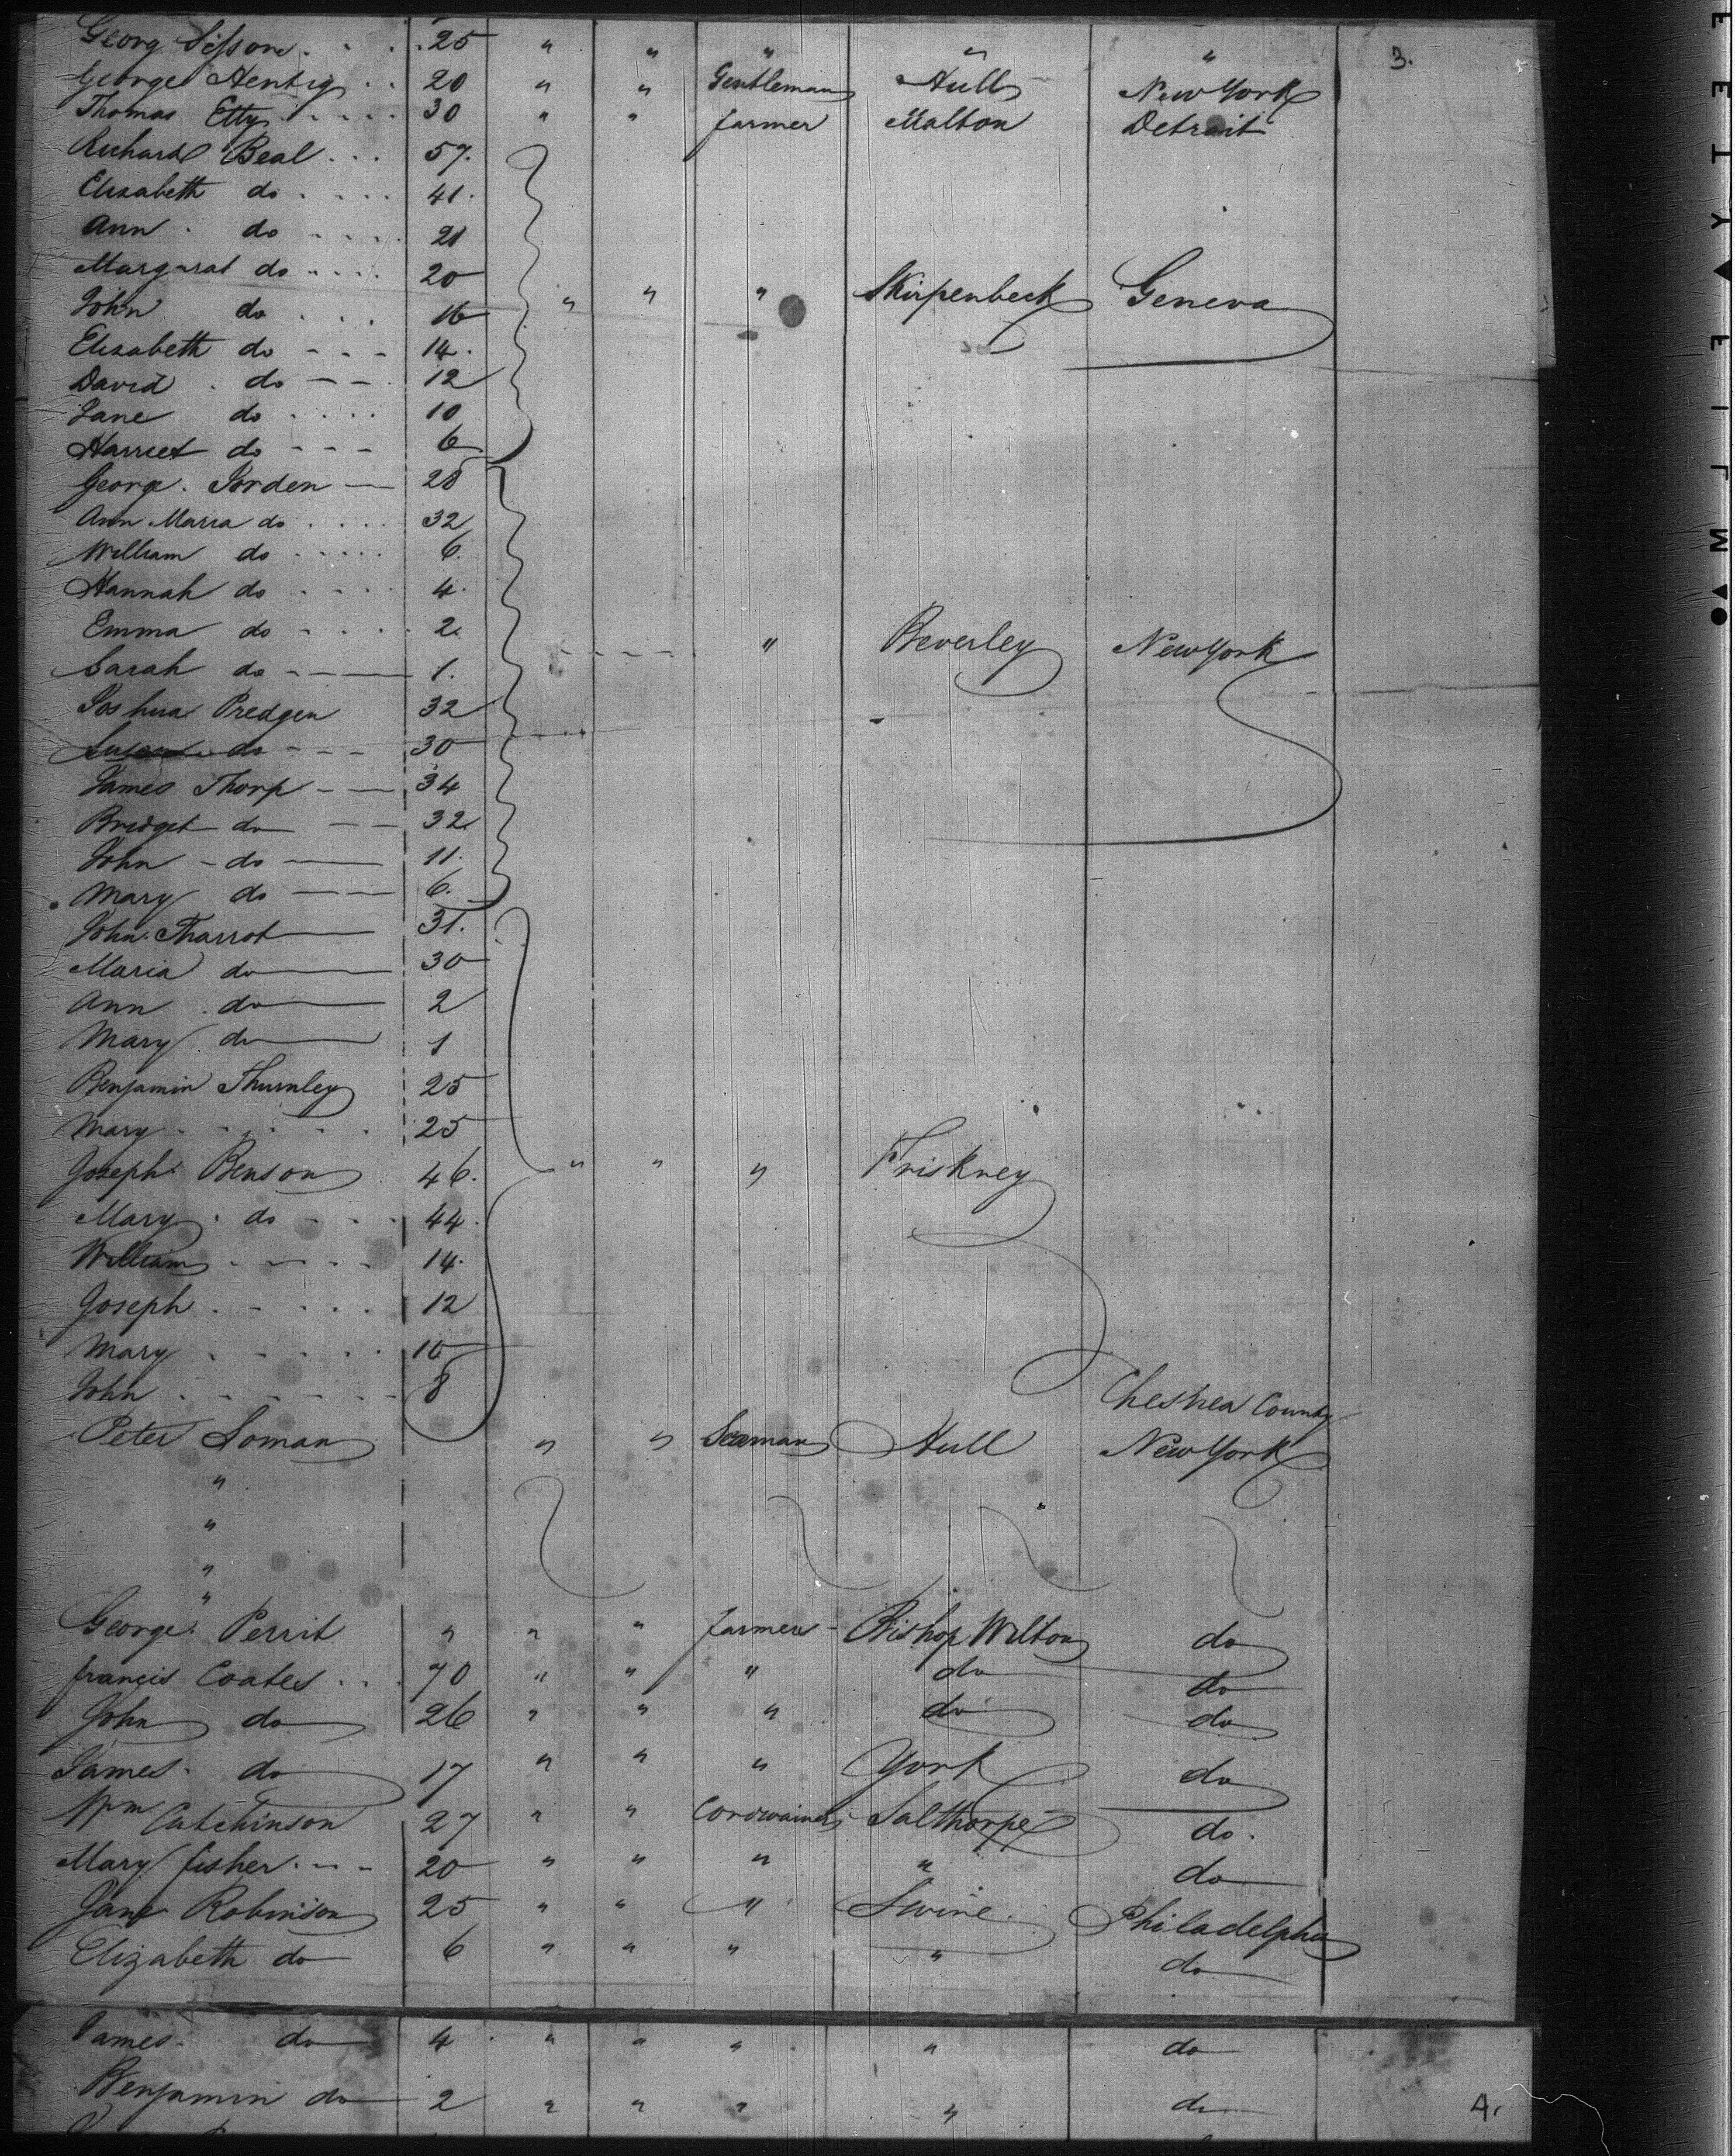 Georg Sisson . . . 25 " " " " " 3.
George Hentig . . 20 " " Gentleman Hull New York
Thomas Etty . . . . 30 " " farmer Malton Detroit
Richard Beal . . . 57.
Elizabeth do . . . . 41.
Ann . do . . . . 21
Margarat do . . . . 20
John do . . . 16 " " " Skirpenbeck Geneva
Elizabeth do - - - 14.
David . do - - . 12
Jane do . . . . 10
Harriet do - - - 6
George . Jorden — 28
Ann Maria do . . . . 32
William do . . . . . 6.
Hannah do . . . . 4.
Emma do . . . . 2.
Sarah do - - — 1. " Beverley New York
Joshua Predgen 32
do - - - 30
James Thorp - — 34
Bridget do — — 32
John - do — 11.
Mary do — — 6.
John Tharrot — 31.
Maria do — 30
Ann . do — 2
Mary . do — 1
Benjamin Thurnley 25
Mary . . . . . . 25
Joseph Benson 46. " " " Friskney
Mary . do - . . 44.
William . - - . . 14.
Joseph . - . . . 12
Mary . . . . . 10
John . - - . . - 8 County
Peter Soman " " Seaman Hull New York
"
"
"
"
George Perrit " " " farmer - Bishop Wilton do
francis Coates . . . 70 " " " do do
John do 26 " " " do do
James . do 17 " " " York do
Wm Cutchinson 27 " " Cordwainer Salthorpe do.
Mary fisher . - - 20 " " " " do
Jane Robinson 25 " " " Swine . Philadelphia
Elizabeth do 6 " " " " do
James . do 4 . " " " " do
Benjamin do 2 " " " " do 4.